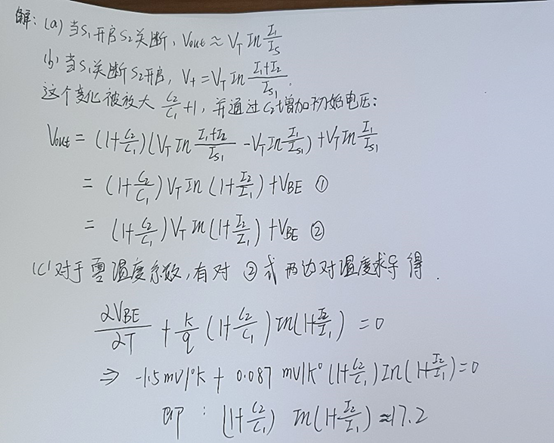 解:(a)当S₁开启S₂关断,Vout≈V_T In I₁/Is
(b)当S₁关断S₂开启,V₊=V_T In (I₁+I₂)/I_S1
这个变化被放大 C₂/C₁+1,并通过C₂增加初始电压:
Vout=(1+C₂/C₁)(V_T In (I₁+I₂)/I_S1-V_T In I₁/I_S1)+V_T In I₁/I_S1
=(1+C₂/C₁)V_T In(1+I₂/I₁)+V_BE ①
=(1+C₂/C₁)V_T In(1+I₂/I₁)+V_BE ②
(c)对于零温度系数,有对②式两边对温度求导得.
∂V_BE/∂T+k/q(1+C₂/C₁)In(1+I₂/I₁)=0
⇒-1.5mV/°K+0.087 mV/K°(1+C₂/C₁)In(1+I₂/I₁)=0
即:(1+C₂/C₁) In(1+I₂/I₁)≈17.2